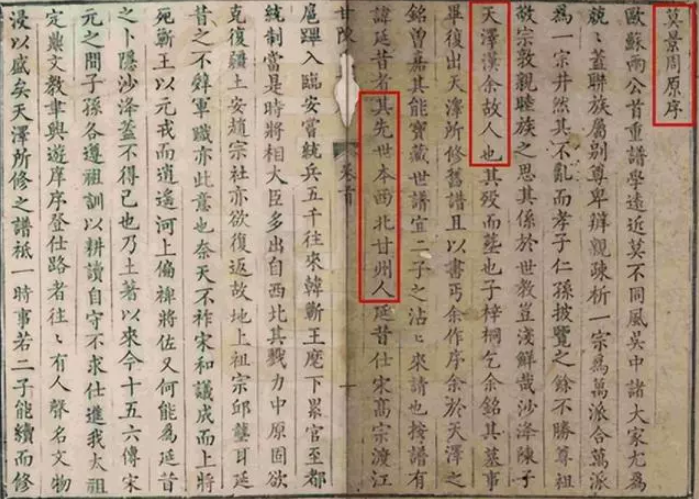 莫景周原序
歐蘇兩公首重譜學遠近莫不同風吳中諸大家尤爲
兢〻蓋聯族屬別尊卑辨親疎析一宗爲萬派合萬派
為一宗井然其不亂而孝子仁孫披覽之餘不勝尊祖
敬宗敦親睦族之思其係於世教豈淺鮮哉沙洚陳子
天澤漢余故人也其歿而塟也子梓桐乞余銘其墓事
畢復出天澤所修舊譜且以書丐余作序余於天澤之
銘曾嘉其能寳藏世譜宜二子之沾〻來請也按譜有
諱廷昔者其先世本西北甘州人廷昔仕宋髙宗渡江
甘陳 卷首 一
扈蹕入臨安嘗統兵五千往來韓蘄王麾下累官至都
統制當是時將相大臣多出自西北其戮力中原固欲
克復疆土安趙宗社亦欲復返故地上祖宗邱壟耳廷
昔之不辤軍職亦此意也奈天不祚宋和議成而上將
死蘄王以元戎而逍遙河上偏裨將佐又何能爲廷昔
之卜隱沙洚蓋不得已也乃土著以來今十五六傳宋
元之間子孫各遵祖訓以耕讀自守不求仕進我太祖
定鼎文教聿興遊庠序登仕路者往〻有人聲名文物
浸以盛矣天澤所修之譜祗一時事若二子能續而修